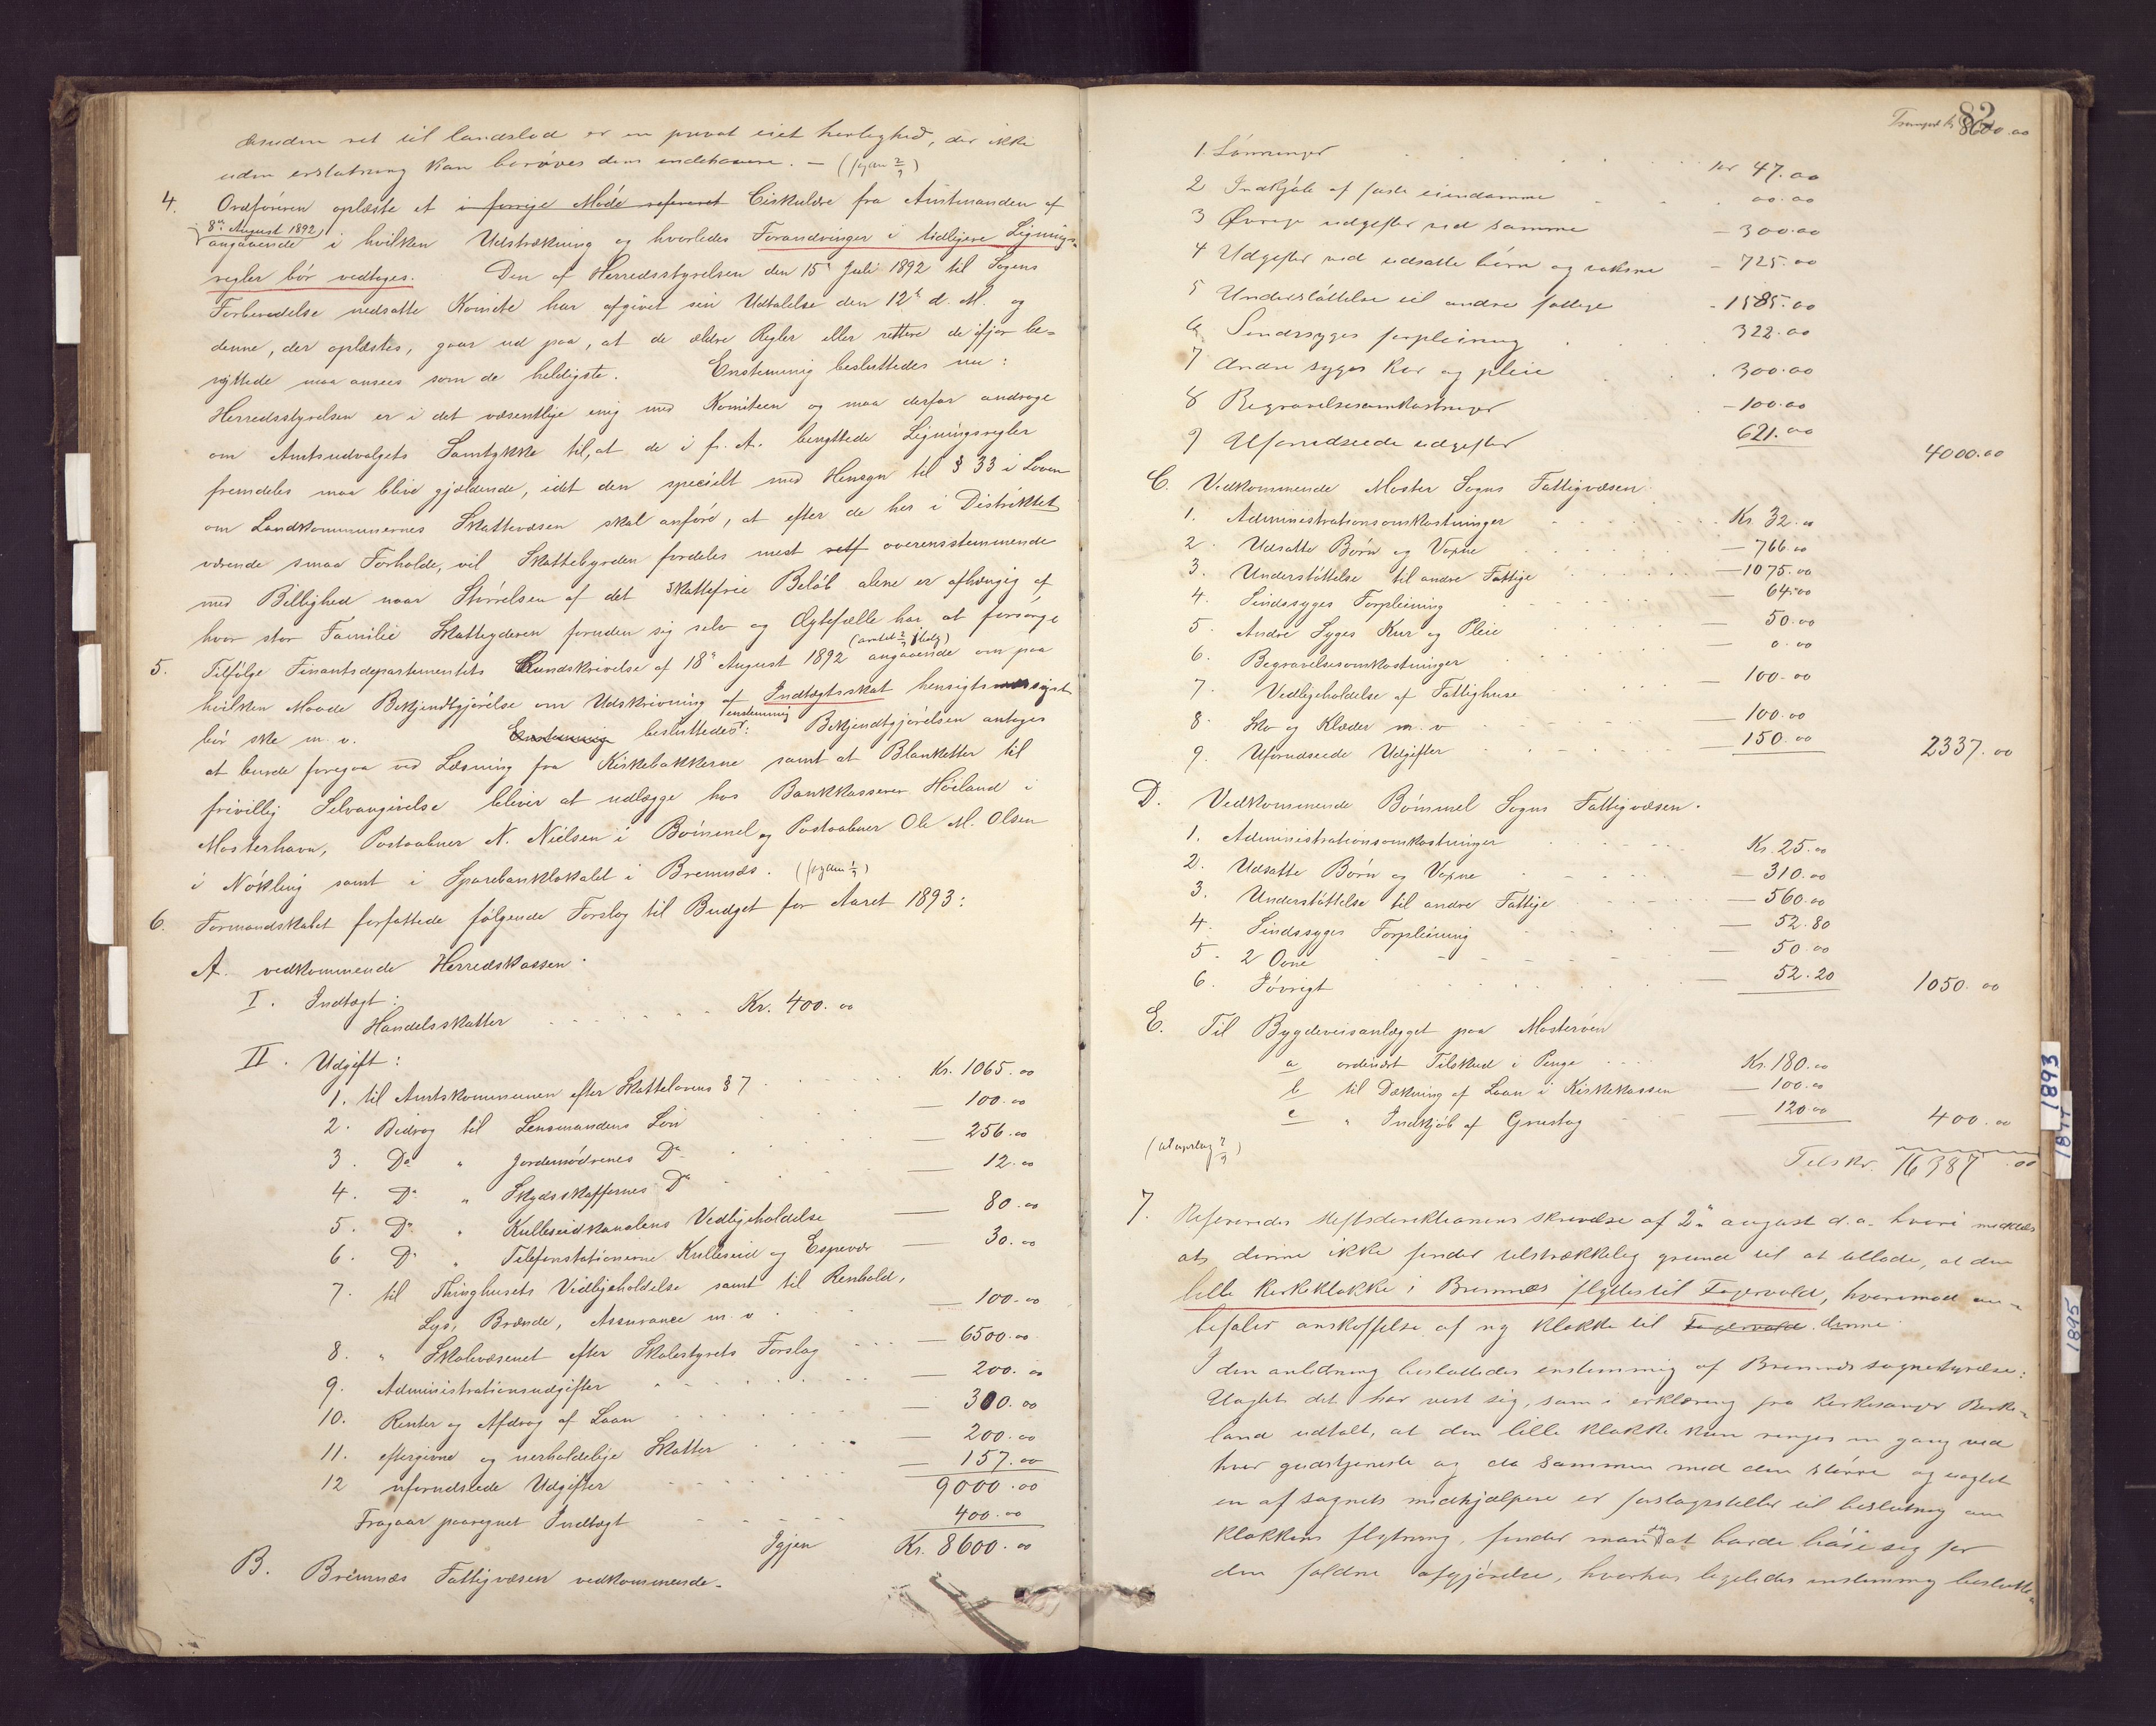 desuden ret til landslod er en privat eiet herlighed, der ikke
uden erstatning kan berøves dens indehavere. —
4. Ordføreren oplæste et i forrige Møde refereret Cirkulære fra Amtmanden af
8de August 1892
angaaende i hvilken Udstrækning og hvorledes Forandringer i tidligere Lignings-
regler bør vedtages. Den af Herredsstyrelsen den 15de Juli 1892 til Sagens
Forberedelse nedsatte Komite har afgivet sin Udtalelse den 12te d. M. og
denne, der oplæstes, gaar ud paa, at de ældre Regler eller rettere de ifjor be-
nyttede maa ansees som de heldigste. Enstemmig besluttedes nu:
Herredsstyrelsen er i det væsentlige enig med Komiteen og maa derfor andrage
om Amtsudvalgets Samtykke til, at de i f. A. benyttede Ligningsregler
fremdeles maa blive gjældende, idet den specielt med Hensyn til § 33 i Loven
om Landkommunernes Skattevæsen skal anføre, at efter de her i Distriktet
værende smaa Forholde, vil Skattebyrden fordeles mest overensstemmende
med Billighed naar Størrelsen af det skattefrie Beløb alene er afhængig af
hvor stor Familie Skatteyderen foruden sig selv og Ægtefælle har at forsørge
5. Tilfølge Finantsdepartementets Rundskrivelse af 18de August 1892 angaaende om paa
hvilken Maade Bekjendtgjørelse om Udskrivning af Indtægtsskat hensigtsmæssigst
bør ske m. v. Enstemmig besluttedes enstemmig: Bekjendtgjørelsen antages
at burde foregaa ved Læsning fra Kirkebakkerne samt at Blanketter til
frivillig Selvangivelse bliver at udlægge hos Bankkasserer Høiland i
Mosterhavn, Postaabner N. Nielsen i Bømmel og Postaabner Ole M. Olsen
i Nøkling samt i Sparebanklokalet i Bremnæs.
6. Formandskabet forfattede følgende Forslag til Budget for Aaret 1893:
A. vedkommende Herredskassen.
I. Indtægt:
Handelsskatter Kr. 400.00
II. Udgift:
1. til Amtskommunen efter Skattelovens § 7 Kr. 1065.00
2. Bidrag til Lensmandens Løn — 100.00
3. Do " Jordemødrenes Do — 256.00
4. Do " Skydsskaffernes Do — 12.00
5. Do " Kulleseidkanalens Vedligeholdelse — 80.00
6. Do " Telefonstationerne Kulleseid og Espevær — 30.00
7. til Thinghusets Vedligeholdelse samt til Renhold,
Lys, Brænde, Assurance m. v — 100.00
8. " Skolevæsenet efter Skolestyrets Forslag — 6500.00
9. Administrationsudgifter — 200.00
10. Renter og Afdrag af Laan — 300.00
11. eftergivne og uerholdelige Skatter — 200.00
12 uforudseede Udgifter — 157.00
9000.00
Fragaar paaregnet Indtægt 400.00
Igjen Kr. 8600.00
B. Bremnæs Fattigvæsen vedkommende.
82
Transport kr 8600.00
1. Lønninger kr 47.00
2 Indkjøb af faste eiendomme 00.00
3 Øvrige udgifter ved samme — 300.00
4 Udgifter ved udsatte børn og voksne — 725.00
5 Understøttelse til andre fattige - 1585.00
6 Sindssyges forpleining 322.00
7 Andre syges kur og pleie 300.00
8 Begravelsesomkostninger — 100.00
9 Uforudseede udgifter 621.00
4000.00
C. Vedkommende Moster Sogns Fattigvæsen
1. Administrationsomkostninger Kr. 32.00
2. Udsatte Børn og Voxne — 766.00
3. Understøttelse til andre Fattige — 1075.00
4. Sindssyges Forpleining — 64.00
5. Andre Syges Kur og Pleie — 50.00
6. Begravelsesomkostninger — 0.00
7. Vedligeholdelse af Fattighuse — 100.00
8. Sko og Klæder m. v — 100.00
9. Uforudseede Udgifter — 150.00
2337.00
D. Vedkommende Bømmel Sogns Fattigvæsen.
1. Administrationsomkostninger Kr. 25.00
2. Udsatte Børn og Voxne — 310.00
3. Understøttelse til andre Fattige — 560.00
4. Sindssyges Forpleining — 52.80
5. 2 Ovne — 50.00
6. Iøvrigt — 52.20
1050.00
E. Til Bygdeveisanlægget paa Mosterøen
a ordinært Tilskud i Penge Kr. 180.00
b til Dækning af Laan i Kirkekassen — 100.00
c " Indkjøb af Grustag — 120.00
400.00
Tils kr. 16387.00
7. Refereredes stiftsdirektionens skrivelse af 2den august d.a. hvori meddeles
at denne ikke finder tilstrækkelig grund til at tillade, at den
lille kirkeklokke i Bremnæs flyttes til Fagervold, hvorimod an-
befales anskaffelse af ny klokke til Fagervold denne.
I den anledning besluttedes enstemmig af Bremnes sognestyrelse:
Uagtet det har vist sig, som i erklæring fra kirkesanger Birke-
land udtalt, at den lille klokke kun ringes en gang ved
hver gudstjeneste og da sammen med den større og uagtet
en af sognets medhjælpere er forslagsstiller til beslutning om
klokkens flytning, finder man dog at burde bøie sig for
den faldne afgjørelse, hvorhos ligeledes enstemmig beslutte-
1893
1894
1895